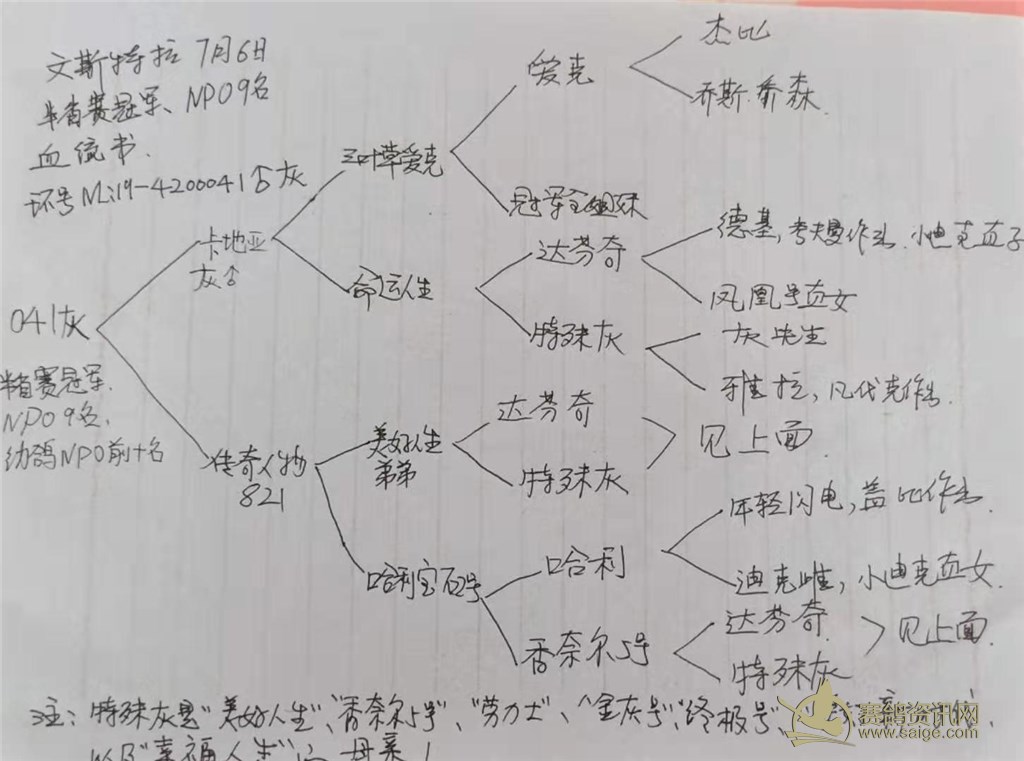 文斯特拉 7月6日
半省赛冠军、NPO9名
血统书.
环号NL19-4200041♂灰
041灰
半省赛冠军.
NPO9名.
幼鸽NPO前十名
卡地亚
灰♂
传奇人物
821
三叶草爱克
命运人生
美好人生
弟弟
哈利宝石2号
爱克
冠军全姐妹
达芬奇
特殊灰
达芬奇
特殊灰
哈利
香奈尔5号
杰比
乔斯.乔森
德基,考夫曼作出.小迪克直子
凤凰号直女
灰先生
雅拉,凡代克作出.
见上面
年轻闪电,盖比作出.
迪克雌,小迪克直女.
达芬奇
特殊灰
见上面.
注:特殊灰是"美好人生"、"香奈尔5号"、"劳力士"、"金灰号"、"终极号"、
以及"幸福人生"之母亲!
赛鸽资讯网
www.saige.com